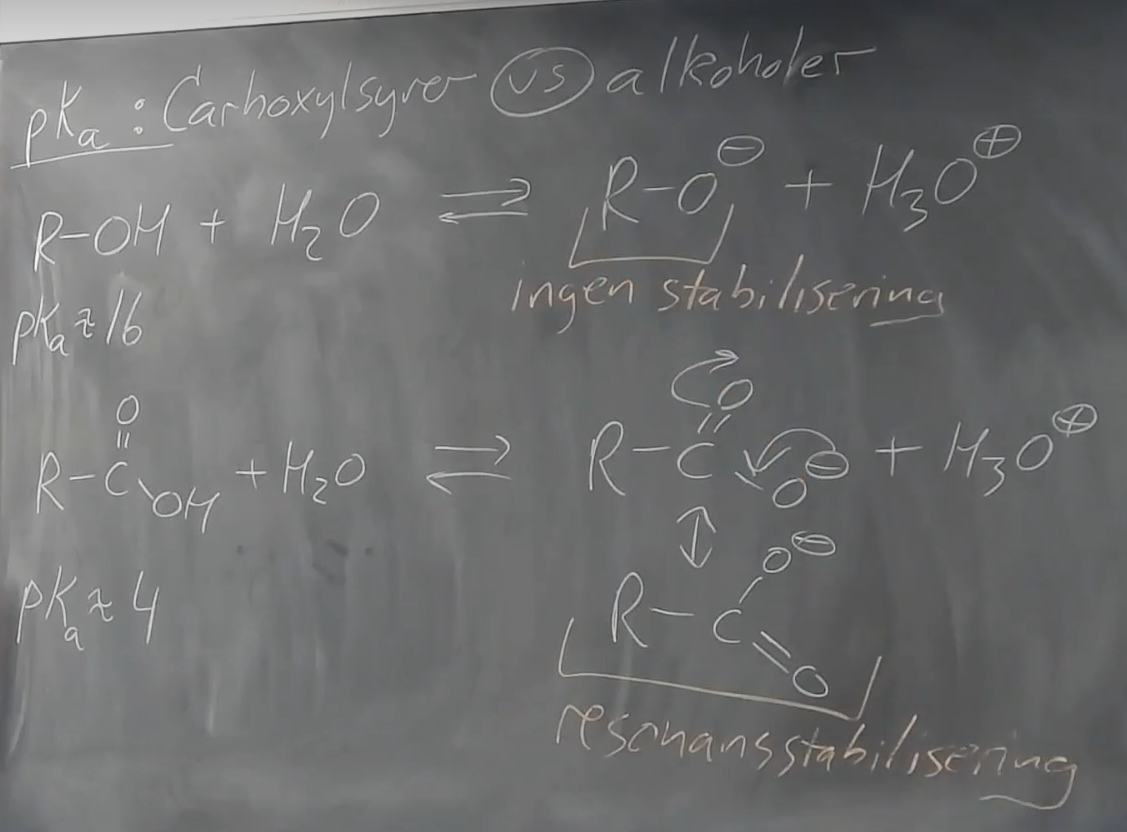 pKa : Carboxylsyrer vs alkoholer
R-OH + H2O ⇌ R-O⊖ + H3O⊕
ingen stabilisering
pKa ≈ 16
O
R-C + H2O ⇌ R-C O⊖ + H3O⊕
OH
O
↕
O⊖
R-C
O
pKa ≈ 4
resonansstabilisering